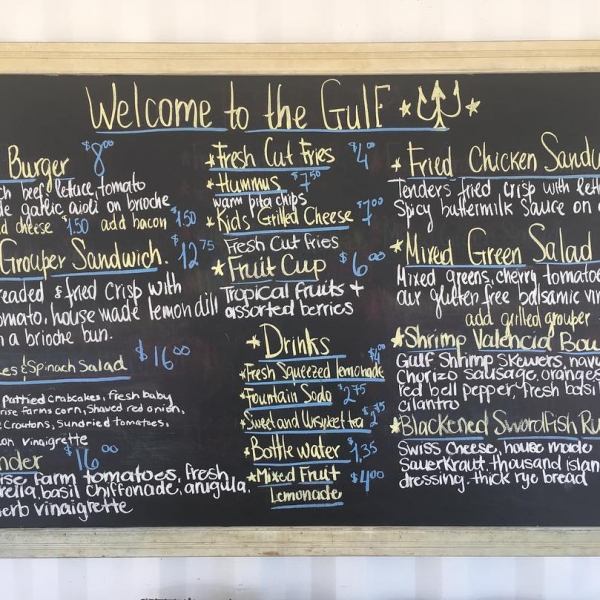 Welcome to the Gulf
Burger $8.00
beef, letuce, tomato
garlic aioli on brioche
cheese $1.50 add bacon $1.50
Grouper Sandwich. $12.75
& fried crisp with
house made lemon dill
a brioche bun.
& Spinach Salad $16.00
pattied crabcakes, fresh baby
farms corn, shaved red onion,
Croutons, sundried tomatoes,
vinaigrette
$16.00
farm tomatoes, fresh
basil chiffonade, arugula,
vinaigrette
Fresh Cut Fries $4.00
Hummus $7.50
warm pita chips
Kids' Grilled Cheese $7.00
Fresh Cut fries
Fruit Cup $6.00
Tropical fruits +
assorted berries
Drinks
Fresh Squeezed lemonade $4.00
Fountain Soda $2.75
Sweet and Unsweet tea
Bottle water $1.35
Mixed Fruit $4.00
Lemonade
Fried Chicken
Tenders fried crisp with
Spicy buttermilk sauce on
Mixed Green Salad
Mixed greens, cherry
our gluten free balsamic
add grilled grouper
Shrimp Valencia
Gulf Shrimp Skewers,
Chorizo sausage, oranges
Red bell pepper, fresh
cilantro
Blackened Swordfish
Swiss cheese, house made
Sauerkraut, thousand
dressing, thick rye bread